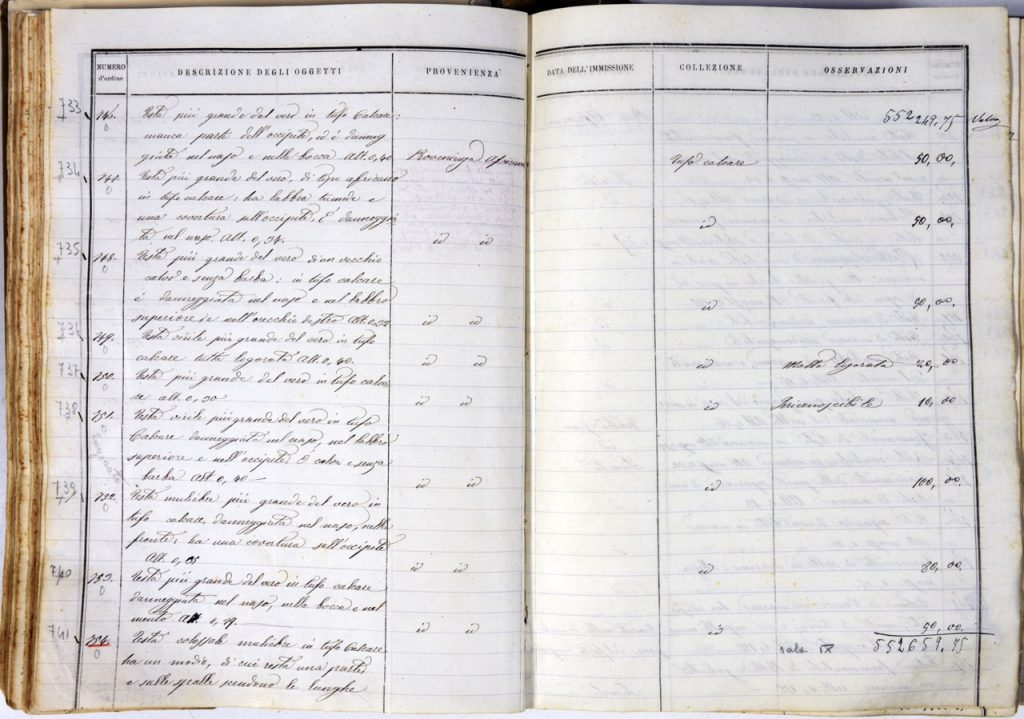 NUMERO d'ordine
DESCRIZIONE DEGLI OGGETTI
PROVENIENZA
DATA DELL'IMMISSIONE
COLLEZIONE
OSSERVAZIONI
552 249,75
733
Testa più grande del vero in tufo calcare:
manca parte dell'occipite, ed è danneg
giata nel naso e nella bocca Alt. 0,40 Provenienza Africana Tufo calcare 50,00.
734
747. Testa più grande del vero, di tipo africano
in tufo calcare: ha labbra tumide e
una covertura sull'occipite. È danneggia
ta nel naso. Alt. 0,34. id id id 50,00.
735
748. Testa più grande del vero di un vecchio
calvo e senza barba: in tufo calcare
è danneggiata nel naso e nel labbro
superiore e nell'orecchio destro Alt. 0,32 id id id 90,00.
736
749. Testa virile più grande del vero in tufo
calcare tutta logorata Alt. 0,40. id id id Molto logorata 20,00
737
750. Testa più grande del vero in tufo calca
re alt. 0,30 id id id 10,00
738
751. Testa virile più grande del vero in tufo
calcare danneggiata nel naso, nel labbro
superiore e nell'occipite. È calva e senza
barba Alt 0,40 id id id 100,00.
739
752. Testa muliebre più grande del vero in
tufo calcare, danneggiata nel naso, nella
fronte; ha una covertura sull'occipite
Alt. 0,35 id id id 80,00.
740
753. Testa più grande del vero in tufo calcare
danneggiata nel naso, nella bocca e nel
mento Alt. 0,29. id id id 50,00.
741
754. Testa colossale muliebre in tufo calcare 552659,75
ha un modio, di cui resta una parte,
e sulle spalle scendono le lunghe